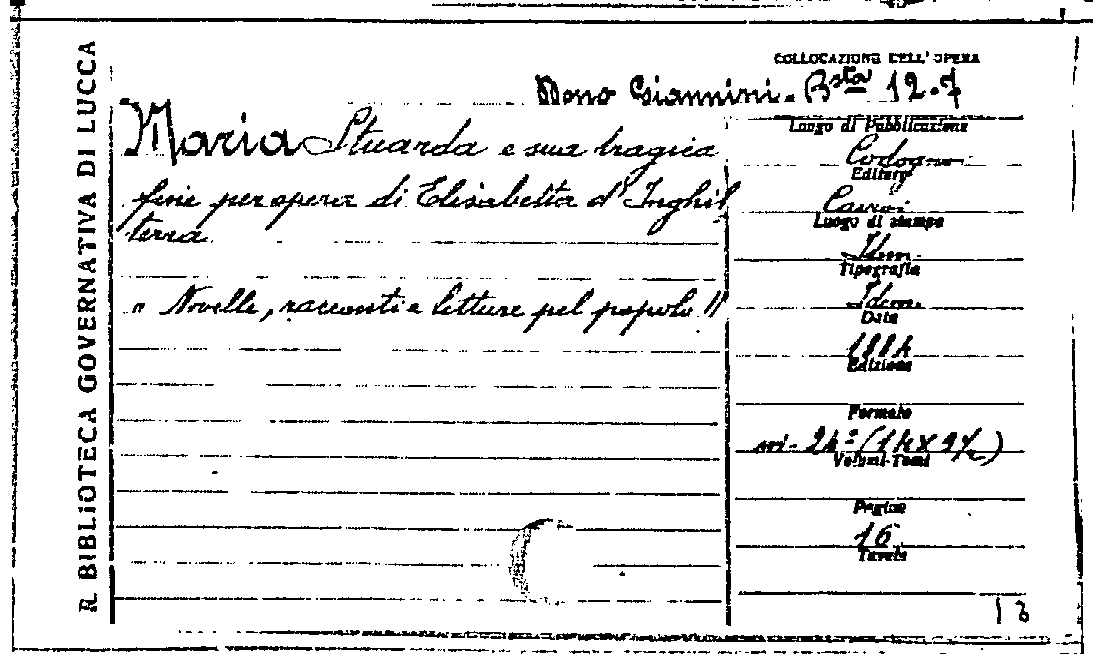 R. BIBLIOTECA GOVERNATIVA DI LUCCA
COLLOCAZIONE DELL' OPERA
Dono Giannini. Bsta 12.7
Maria Stuarda e sua tragica
fine per opera di Elisabetta d'Inghil
terra
" Novelle, racconti e letture pel popolo "
Luogo di Pubblicazione
Codogno
Editore
Cairo
Luogo di stampa
Idem
Tipografia
Idem.
Data
1884
Edizione
Formato
in-24º (14x9½)
Volumi-Tomi
Pagine
16
Tavole
13